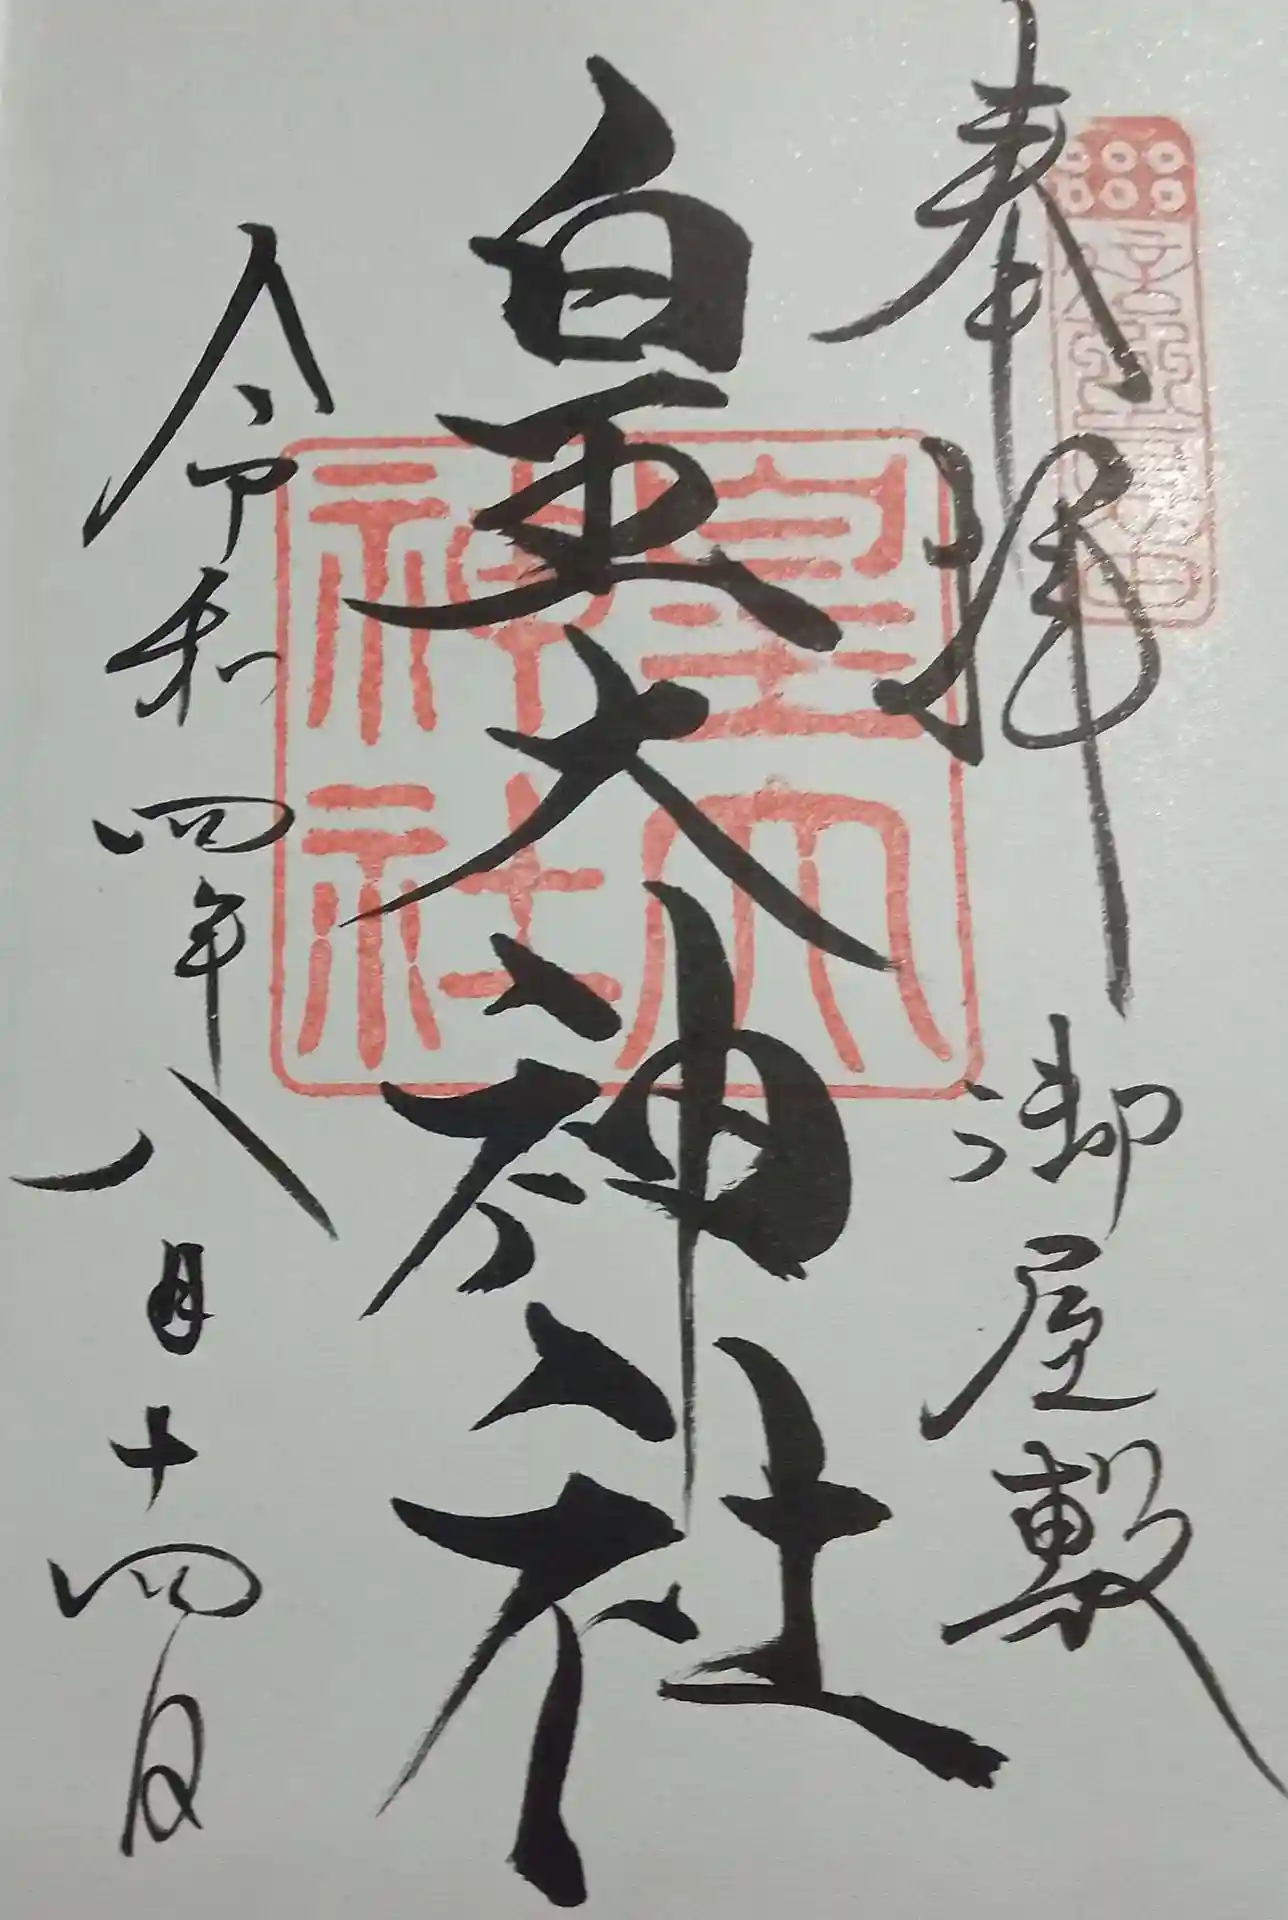 奉拝 御屋敷
皇大神社
皇大
神社
令和四年八月十四日